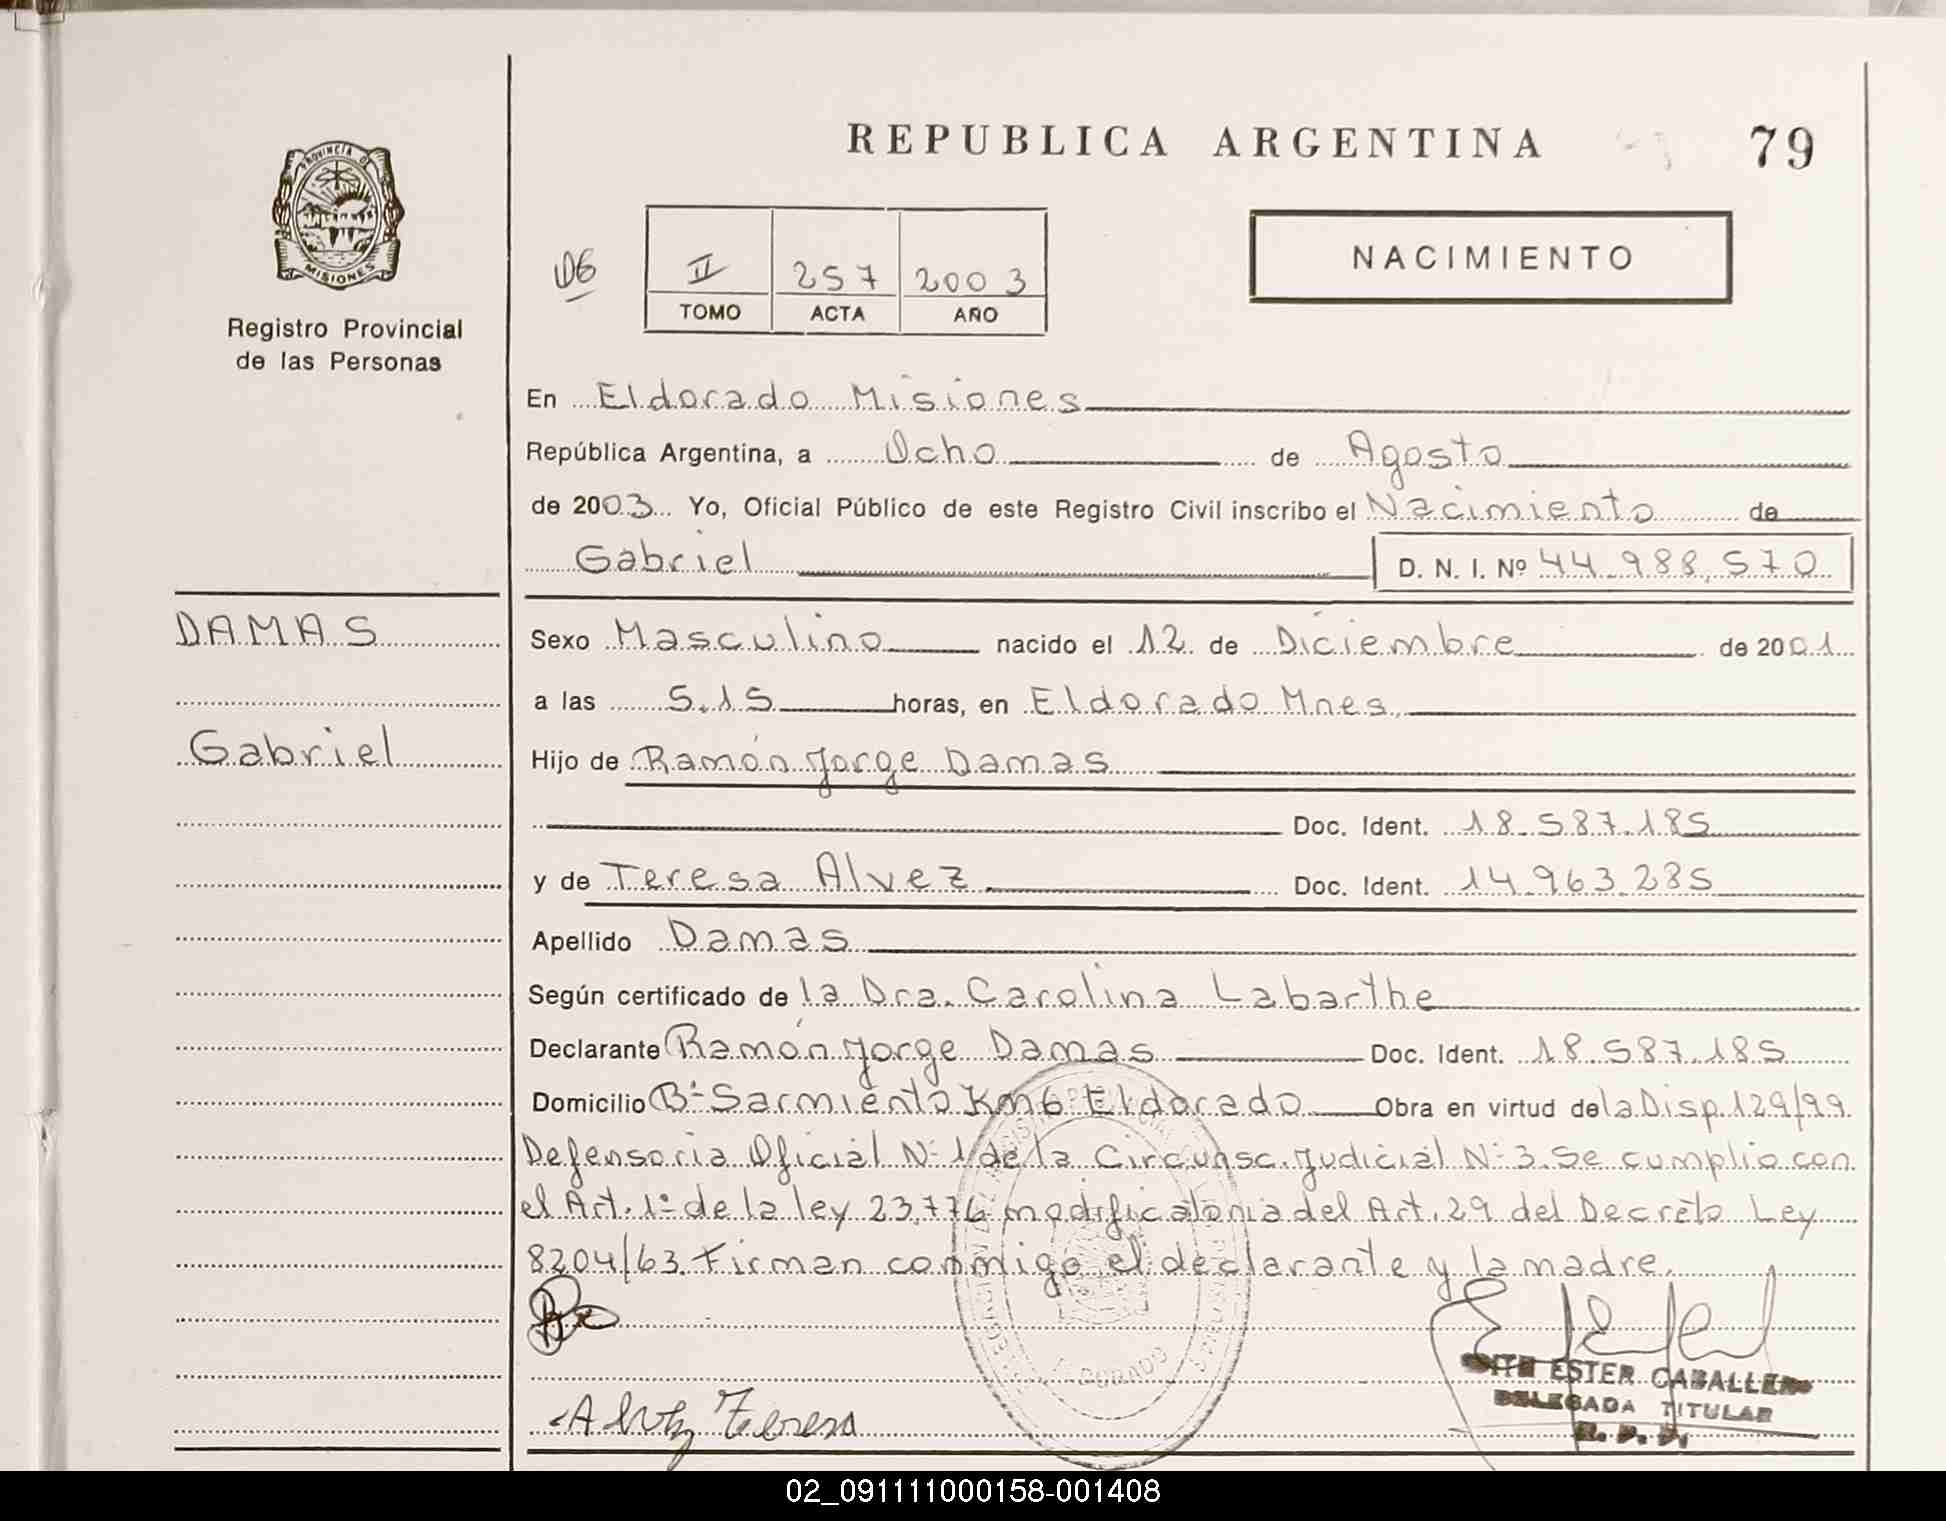 REPUBLICA ARGENTINA
79
PROVINCIA DE
MISIONES
Registro Provincial
de las Personas
06
II 257 2003
TOMO ACTA AÑO
NACIMIENTO
En Eldorado Misiones
República Argentina, a Ocho de Agosto
de 2003 Yo, Oficial Público de este Registro Civil inscribo el Nacimiento de
Gabriel D. N. I. Nº 44.988.570
DAMAS
Gabriel
Sexo Masculino nacido el 12 de Diciembre de 2001
a las 5.15 horas, en Eldorado Mnes.
Hijo de Ramón Jorge Damas
Doc. Ident. 18.587.185
y de Teresa Alvez Doc. Ident. 14.963.285
Apellido Damas
Según certificado de la Dra. Carolina Labarthe
Declarante Ramón Jorge Damas Doc. Ident. 18.587.185
Domicilio Bº Sarmiento Km6 Eldorado Obra en virtud de la Disp. 129/99
Defensoria Oficial Nº 1 de la Circunsc. Judicial Nº 3. Se cumplio con
el Art. 1º de la ley 23.776 modificatoria del Art. 29 del Decreto Ley
8204/63. Firman conmigo el declarante y la madre.
ELDORADO
Alvez Teresa
ESTER CABALLERO
DELEGADA TITULAR
R. P. P.
02_091111000158-001408